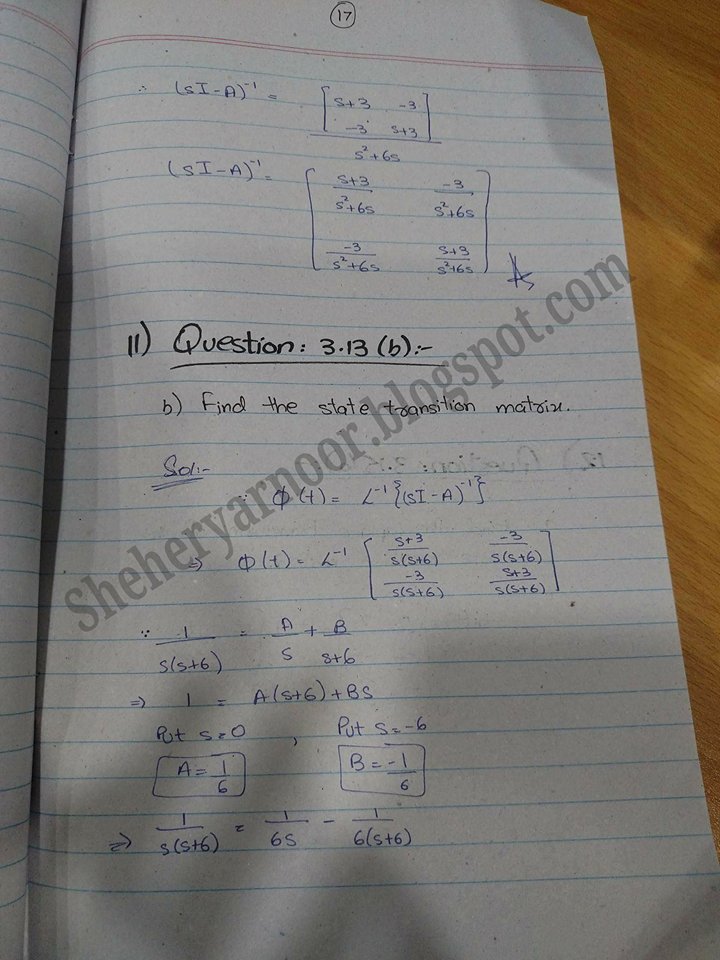 17
∴ (sI-A)⁻¹ = [s+3 -3
-3 s+3]
s²+6s
(sI-A)⁻¹ = [(s+3)/(s²+6s) -3/(s²+6s)
-3/(s²+6s) (s+3)/(s²+6s)]
11) Question: 3.13 (b):-
b) Find the state transition matrix.
Sol:-
∵ Φ(t) = L⁻¹{(sI-A)⁻¹}
⇒ Φ(t) = L⁻¹ [(s+3)/(s(s+6)) -3/(s(s+6))
-3/(s(s+6)) (s+3)/(s(s+6))]
∵ 1/(s(s+6)) = A/s + B/(s+6)
⇒ 1 = A(s+6)+BS
Put s=0 , Put s=-6
A=1/6 B=-1/6
⇒ 1/(s(s+6)) = 1/(6s) - 1/(6(s+6))
Sheheryarnoor.blogspot.com